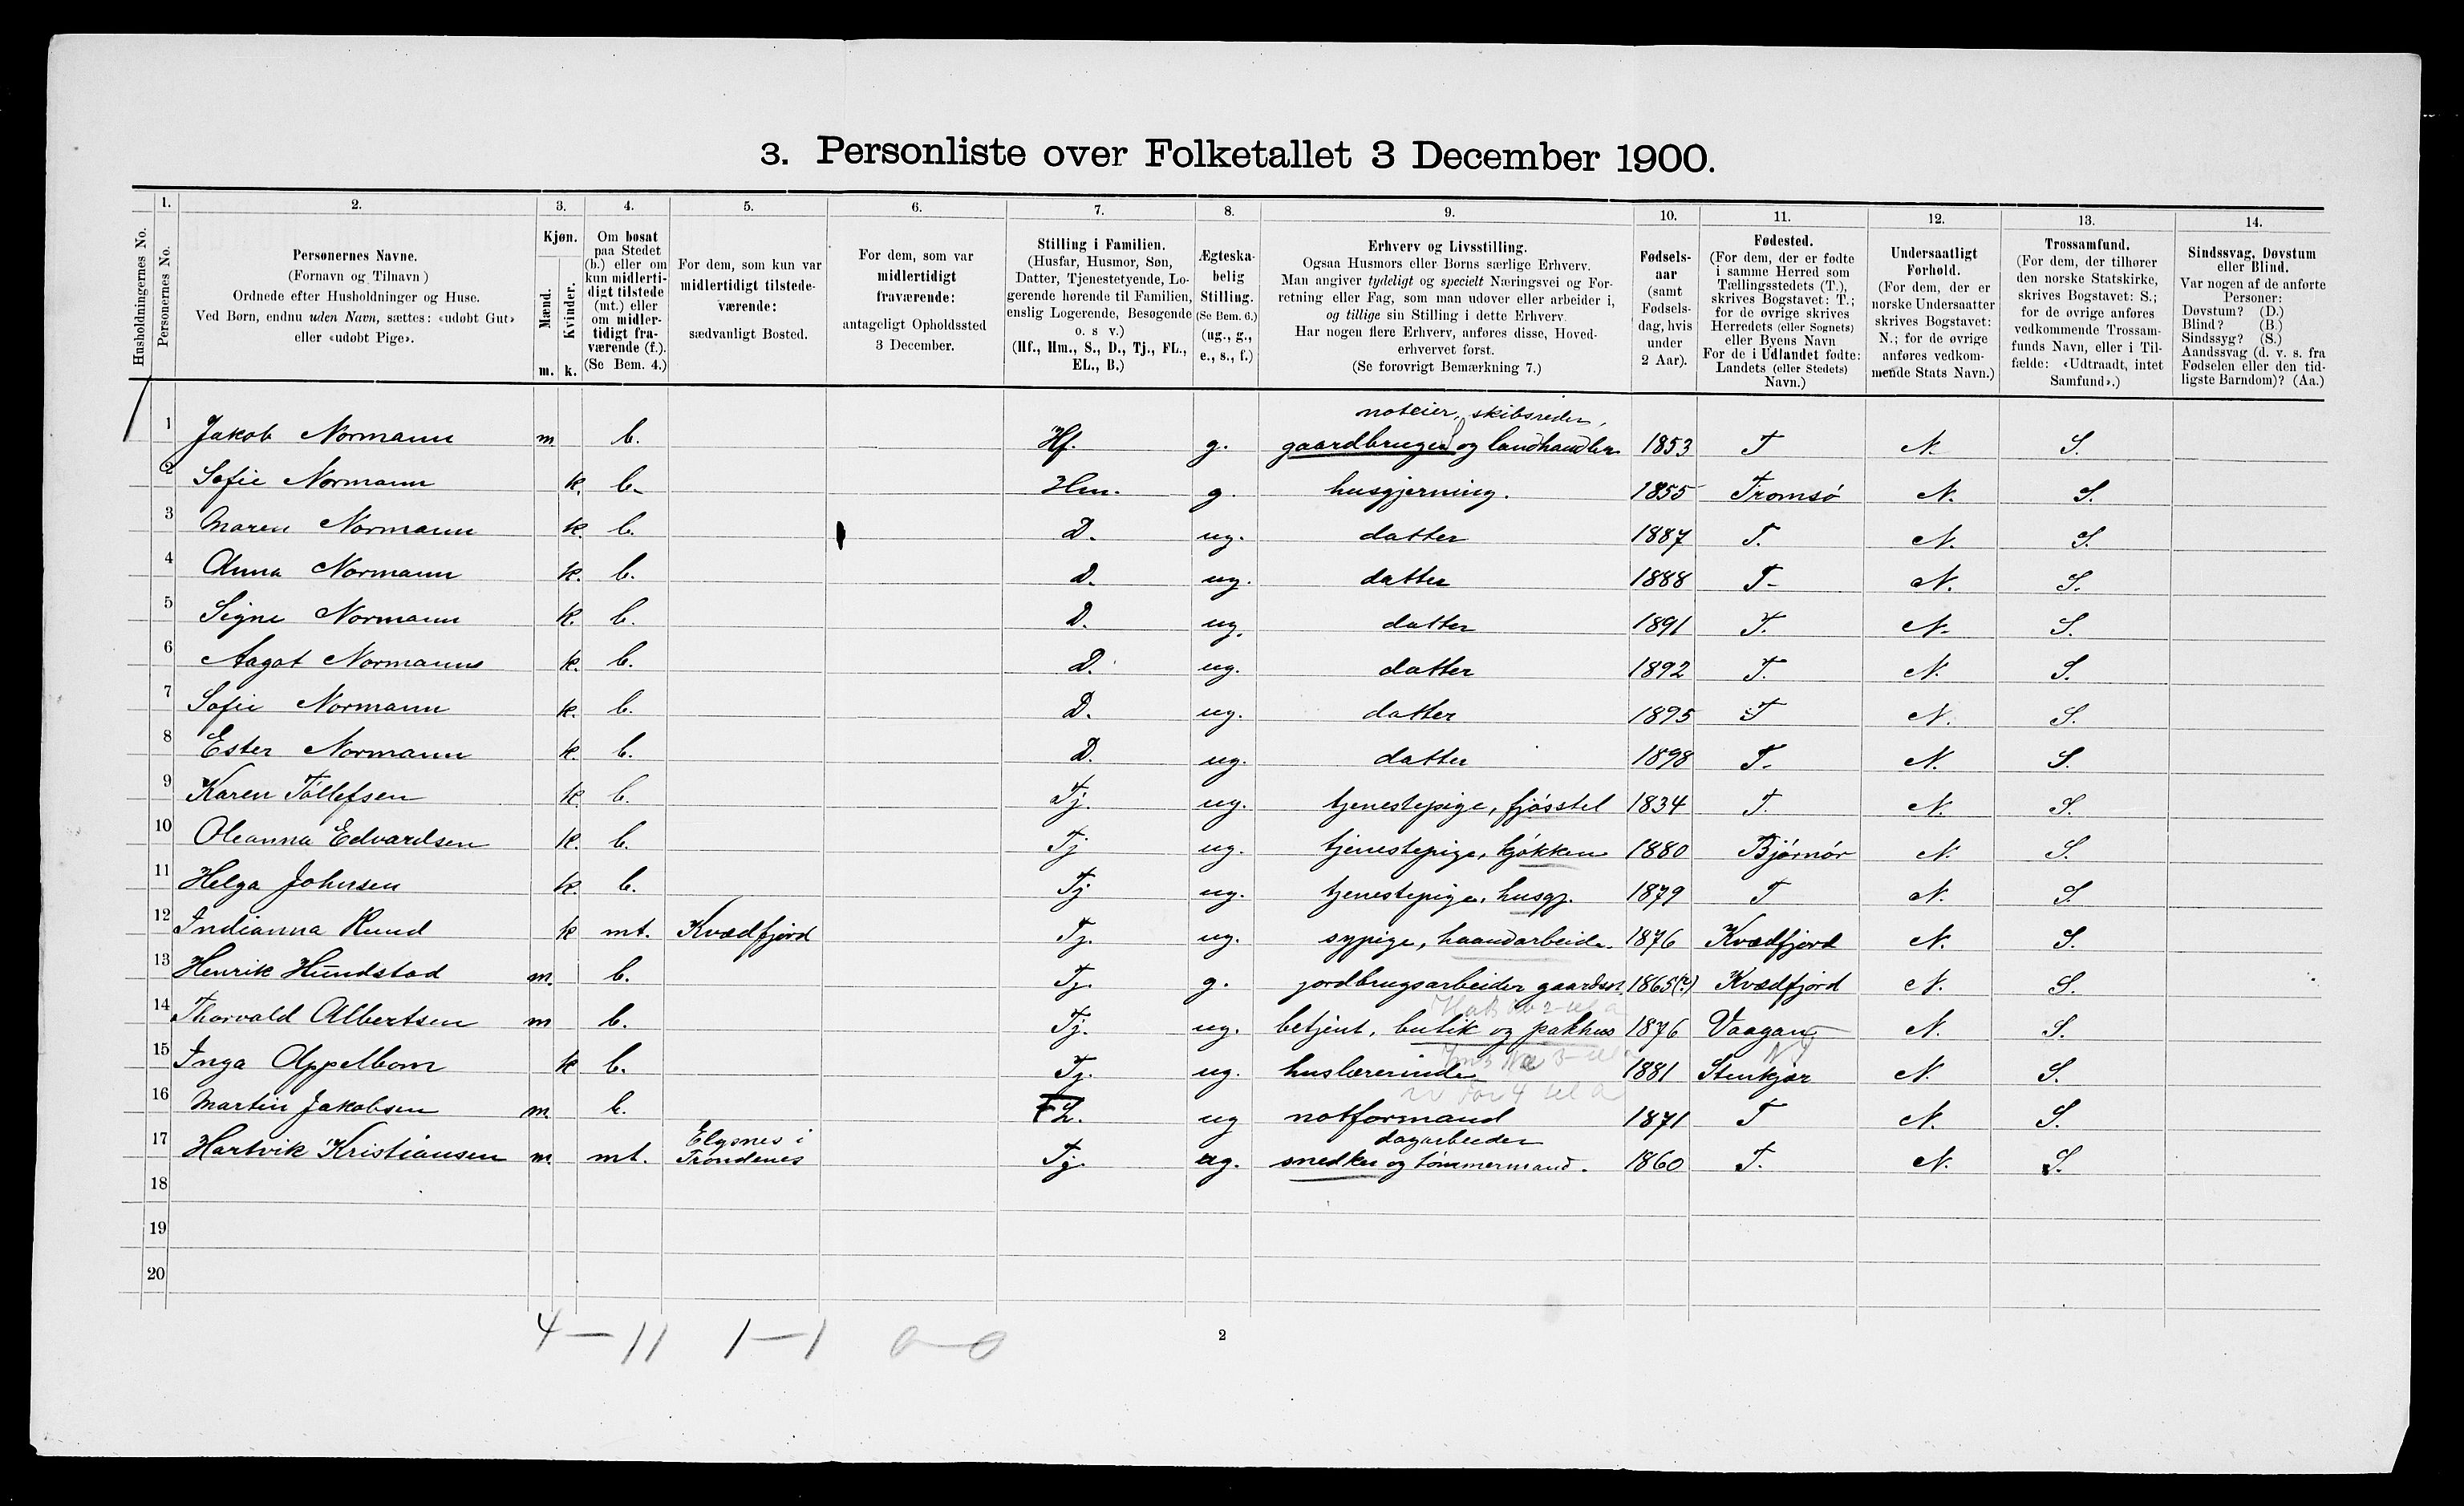 3. Personliste over Folketallet 3 December 1900.
Husholdningernes No.
1.
Personernes No.
2.
Personernes Navne.
(Fornavn og Tilnavn)
Ordnede efter Husholdninger og Huse.
Ved Børn, endnu uden Navn, sættes: «udøbt Gut»
eller «udøbt Pige».
3.
Kjøn.
Mænd.
m.
Kvinder.
k.
4.
Om bosat
paa Stedet
(b.) eller om
kun midlerti-
digt tilstede
(mt.) eller
om midler-
tidigt fra-
værende (f.).
(Se Bem. 4.)
5.
For dem, som kun var
midlertidigt tilstede-
værende:
sædvanligt Bosted.
6.
For dem, som var
midlertidigt
fraværende:
antageligt Opholdssted
3 December.
7.
Stilling i Familien.
(Husfar, Husmor, Søn,
Datter, Tjenestetyende, Lo-
gerende hørende til Familien,
enslig Logerende, Besøgende
o. s v.)
(Hf., Hm., S., D., Tj., FL.,
EL., B.)
8.
Ægteska-
belig
Stilling.
(Se Bem. 6.)
(ug., g.,
e., s., f.)
9.
Erhverv og Livsstilling.
Ogsaa Husmors eller Børns særlige Erhverv.
Man angiver tydeligt og specielt Næringsvei og For-
retning eller Fag, som man udøver eller arbeider i,
og tillige sin Stilling i dette Erhverv.
Har nogen flere Erhverv, anføres disse, Hoved-
erhvervet først.
(Se forøvrigt Bemærkning 7.)
10.
Fødsels-
aar
(samt
Fødsels-
dag, hvis
under
2 Aar).
11.
Fødested.
(For dem, der er fødte
i samme Herred som
Tællingsstedets (T.),
skrives Bogstavet: T.;
for de øvrige skrives
Herredets (eller Sognets)
eller Byens Navn
For de i Udlandet fødte:
Landets (eller Stedets)
Navn.)
12.
Undersaatligt
Forhold.
(For dem, der er
norske Undersaatter
skrives Bogstavet:
N.; for de øvrige
anføres vedkom-
mende Stats Navn.)
13.
Trossamfund.
(For dem, der tilhører
den norske Statskirke,
skrives Bogstavet: S.;
for de øvrige anføres
vedkommende Trossam-
funds Navn, eller i Til-
fælde: «Udtraadt, intet
Samfund».)
14.
Sindssvag, Døvstum
eller Blind.
Var nogen af de anførte
Personer:
Døvstum? (D.)
Blind? (B.)
Sindssyg? (S.)
Aandssvag (d. v. s. fra
Fødselen eller den tid-
ligste Barndom)? (Aa.)
noteier, skibsreder,
1 Jakob Normann m b. Hf. g. gaardbruger og landhandler 1853 T N. S.
2 Sofie Normann k. b. Hm. g. husgjerning. 1855 Tromsö N. S.
3 Maren Normann k. b. D. ug. datter 1887 T. N. S.
4 Anna Normann k. b. D. ug. datter 1888 T. N. S.
5 Signe Normann k. b. D. ug. datter 1891 T. N. S.
6 Aagot Normann k. b. D. ug. datter 1892 T. N. S.
7 Sofie Normann k. b. D. ug. datter 1895 T N. S.
8 Ester Normann k. b. D. ug. datter 1898 T. N. S.
9 Karen Töllefsen k. b. Tj. ug. tjenestepige, fjösstel 1834 T. N. S.
10 Oleanna Edvardsen k. b. Tj ug. tjenestepige, kjökken 1880 Bjørnør N. S.
11 Helga Johnsen k. b. Tj ug. tjenestepige, husgj. 1879 T N. S.
12 Indianna Rund k mt. Kvædfjord Tj. ug. sypige, haandarbeide. 1876 Kvædfjord N. S.
13 Henrik Hundstad m. b. Tj. g. jordbrugsarbeider gaards. 1865(?) Kvædfjord N. S.
14 Thorvald Albertsen m b. Tj. ug. betjent, butik og pakhus 1876 Vaagan N. S.
15 Inga Appelbom k b. Tj. ug. huslærerinde 1881 Stenkjær N. S.
16 Martin Jakobsen m. b. FL. ug notformand 1871 T N. S.
Elgsnes i
dagarbeider
17 Hartvik Kristiansen m. mt. Trondenes Tj. ug. snedker og tömmermand. 1860 T. N. S.
18
19
20
4 — 11 1 — 1 0 — 0
2